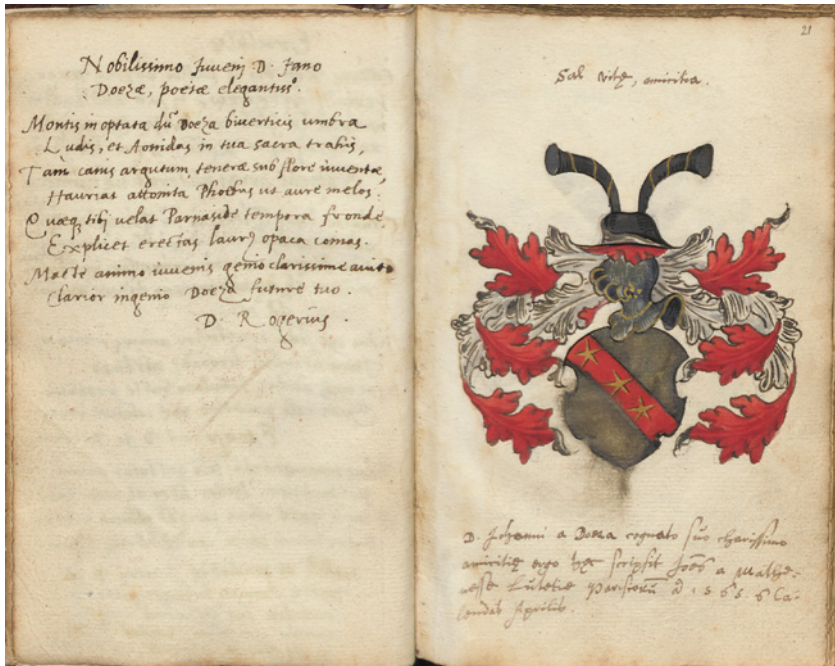 Nobilissimo Juveni D. Jano
Doezæ, poetæ elegantiss⁰.
Montis in optata dū Doeza biverticis umbra
Ludis, et Aonidas in tua sacra trahis,
Tam canis argutum, teneræ sub flore iuventæ
Haurias attonita Phoebus ut aure melos.
Quæq tibi velat Parnaside tempora fronde
Explicet erectas laurus opaca comas.
Macte animo iuvenis genio clarissime avito
Clarior ingenio Doeza future tuo.
D. Rogerius.
21
Sal vitę, amicitia.
D. Johanni a Doeza cognato suo charissimo
amicitię ergo hęc scripsit Joēs a Mathe-
nesse Lutetię Parisiorū a 1565. 6 Ca-
lendas Aprilis.